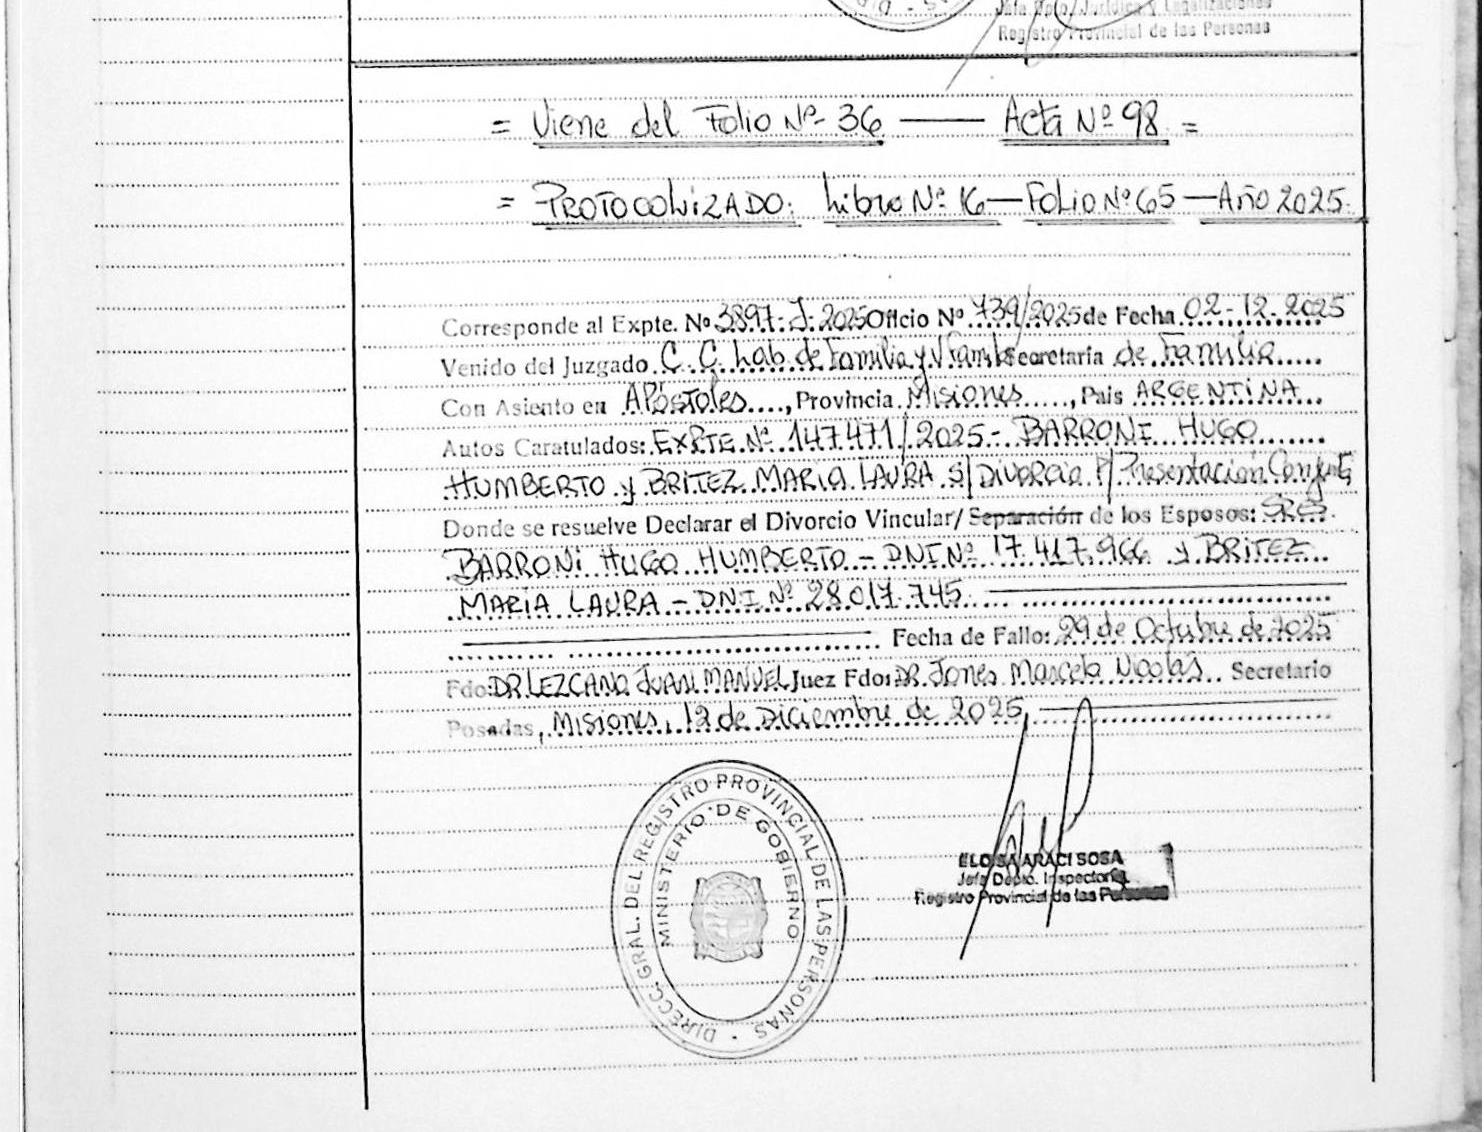 Jefa Dpto. Jurídica y Legalizaciones
Registro Provincial de las Personas
= Viene del Folio Nº 36 — Acta Nº 98 =
= PROTOCOLIZADO: Libro Nº 16 — FOLIO Nº 65 — Año 2025.
Corresponde al Expte. Nº 3897-J-2025 Oficio Nº 739/2025 de Fecha 02-12-2025
Venido del Juzgado C. C. Lab. de Familia y V. Famil. Secretaría de Familia
Con Asiento en APóstoles, Provincia Misiones, País ARGENTINA
Autos Caratulados: EXPTE. Nº 147471/2025 - BARRONI HUGO
HUMBERTO y BRITEZ MARIA LAURA S/ Divorcio P/ Presentación Conjunta
Donde se resuelve Declarar el Divorcio Vincular/ Separación de los Esposos: SRES.
BARRONI HUGO HUMBERTO - DNI Nº 17.417.966 y BRITEZ
MARIA LAURA - DNI Nº 28.017.745
Fecha de Fallo: 29 de Octubre de 2025
Fdo: DR. LEZCANO JUAN MANUEL Juez Fdo: DR. Jones Marcelo Nicolás Secretario
Posadas, Misiones, 12 de Diciembre de 2025
DIRECC. GRAL. DEL REGISTRO PROVINCIAL DE LAS PERSONAS
MINISTERIO DE GOBIERNO
ELOISA ARACI SOSA
Jefa Depto. Inspectoría
Registro Provincial de las Personas